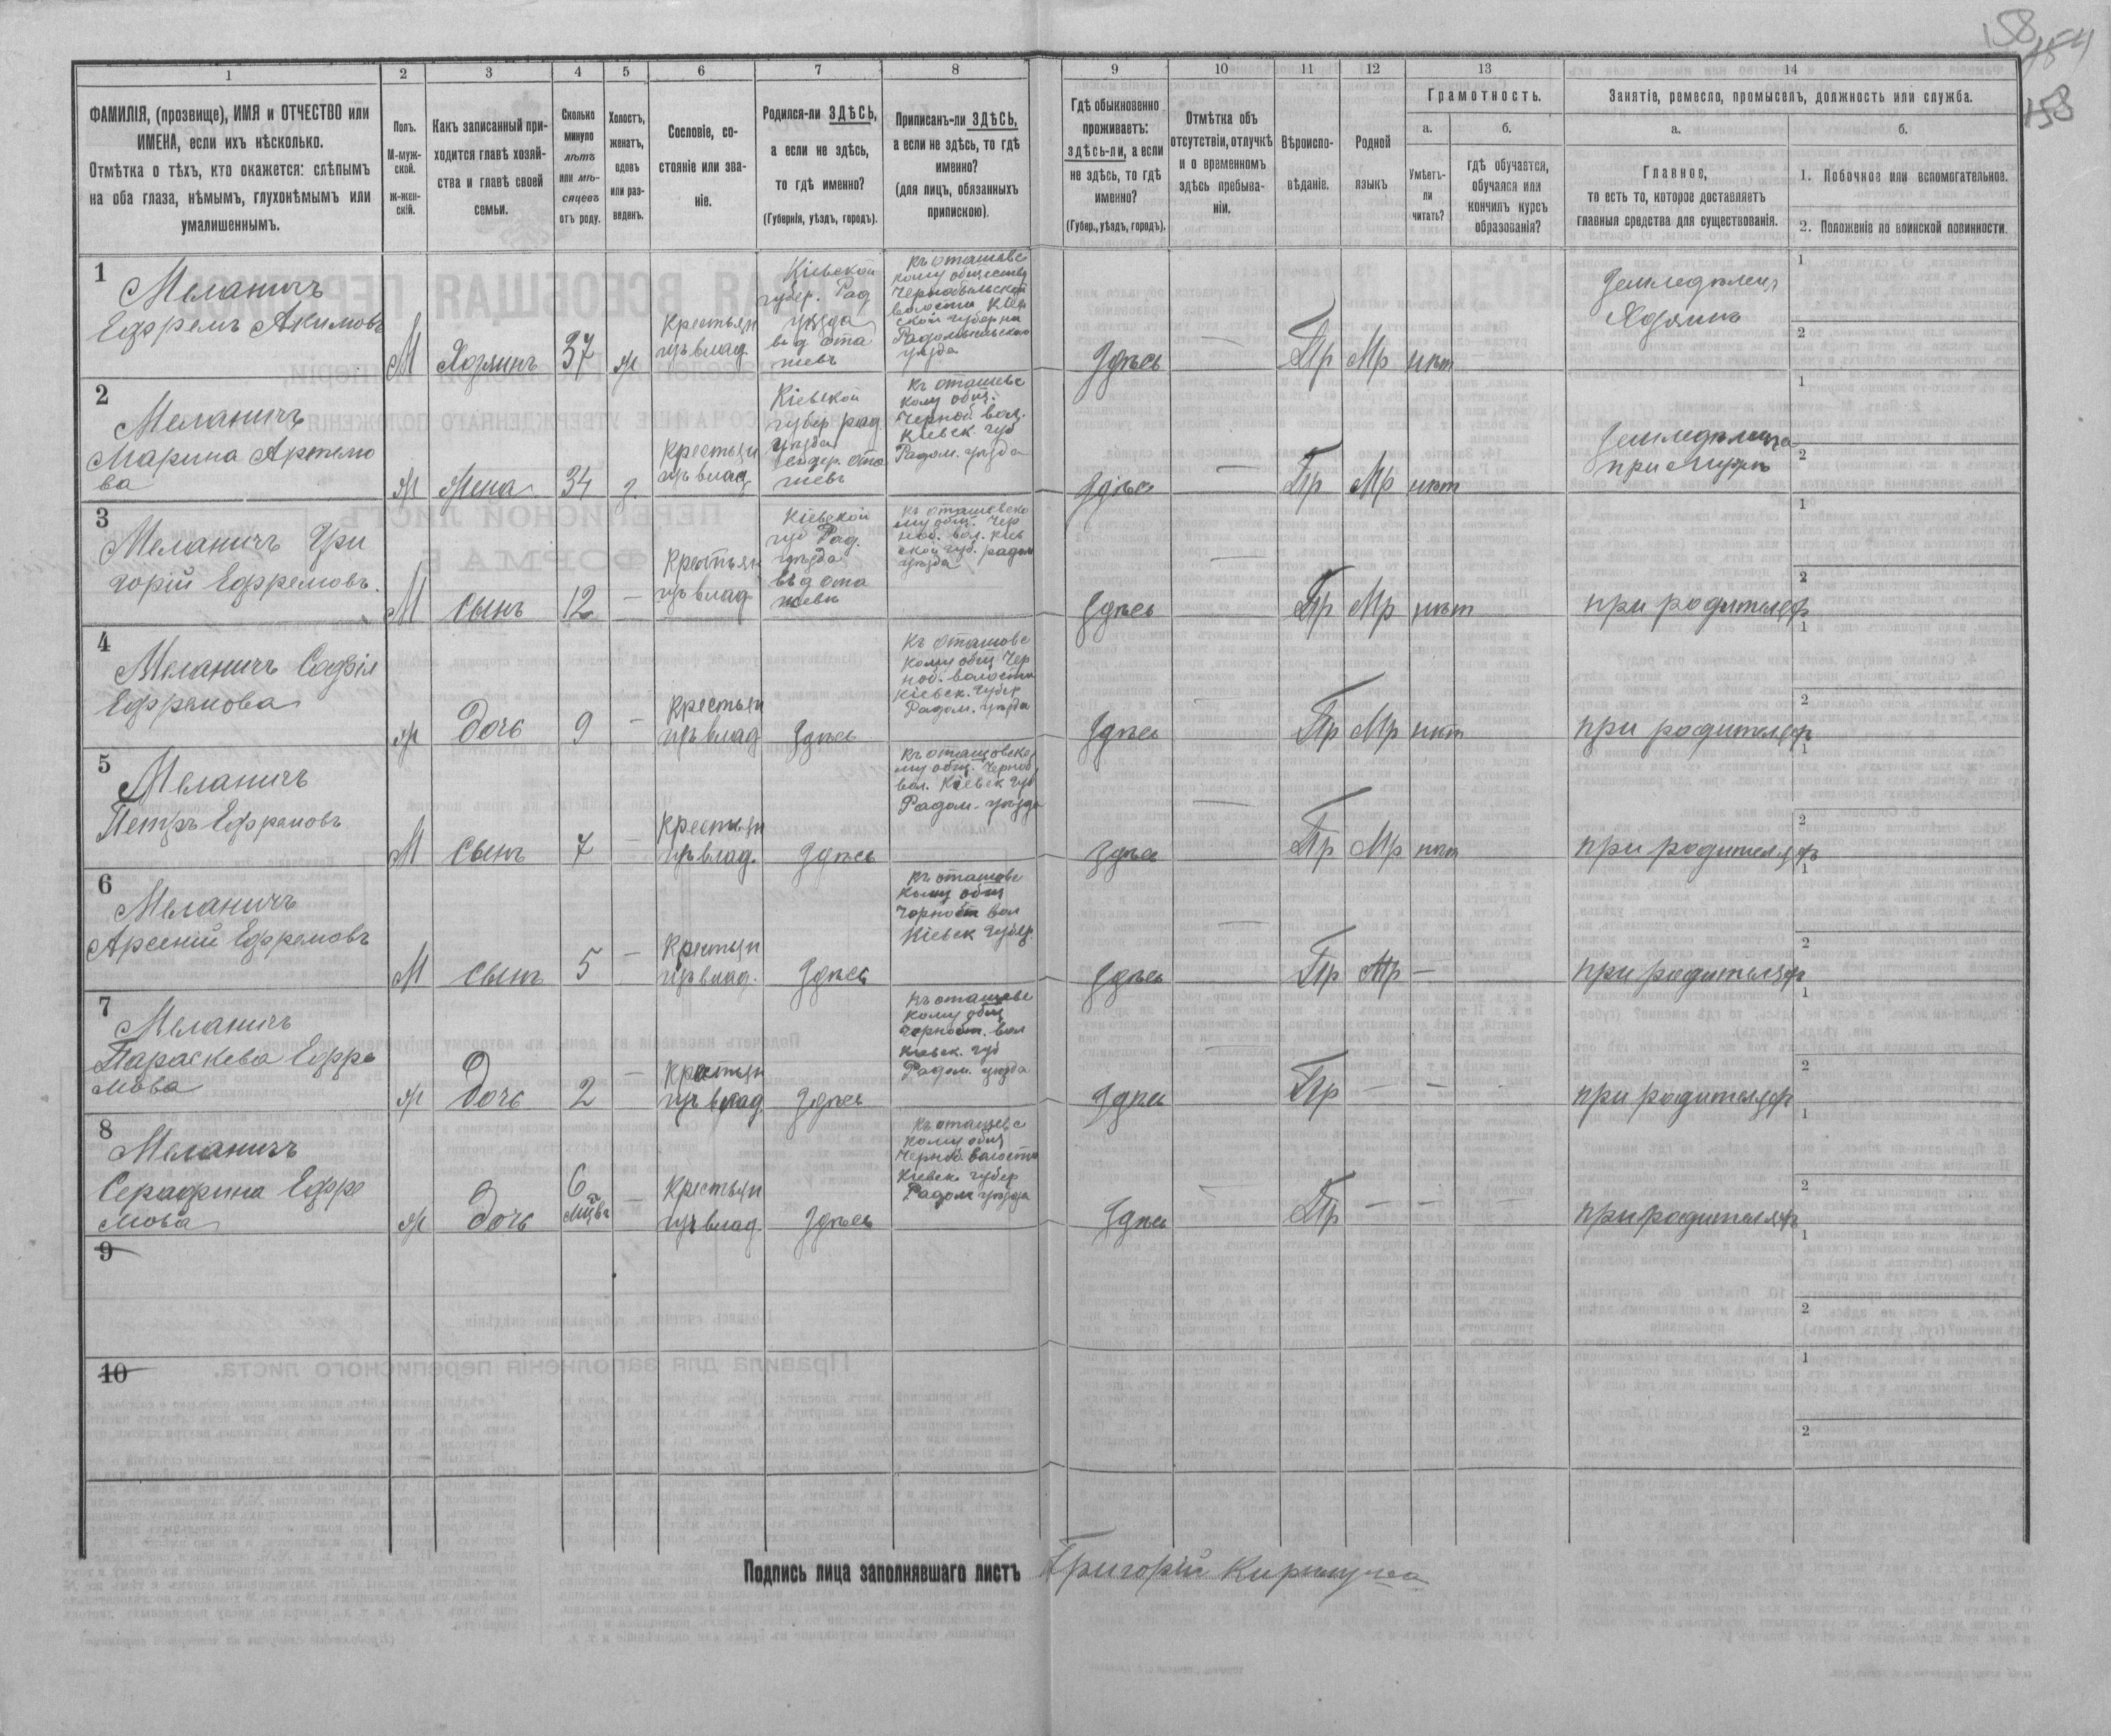 158
154
158
1
2
3
4
5
6
7
8
9
10
11
12
13
14
ФАМИЛІЯ, (прозвище), ИМЯ и ОТЧЕСТВО или
ИМЕНА, если ихъ нѣсколько.
Отмѣтка о тѣхъ, кто окажется: слѣпымъ
на оба глаза, нѣмымъ, глухонѣмымъ или
умалишеннымъ.
Полъ.
М-муж-
ской.
Ж-жен-
скій.
Какъ записанный при-
ходится главѣ хозяй-
ства и главѣ своей
семьи.
Сколько
минуло
лѣтъ
или мѣ-
сяцевъ
отъ роду.
Холостъ,
женатъ,
вдовъ
или раз-
веденъ.
Сословіе, со-
стояніе или зва-
ніе.
Родился-ли ЗДѢСЬ,
а если не здѣсь,
то гдѣ именно?
(Губернія, уѣздъ, городъ).
Приписанъ-ли ЗДѢСЬ,
а если не здѣсь, то гдѣ
именно?
(для лицъ, обязанныхъ
припискою).
Гдѣ обыкновенно
проживаетъ:
здѣсь-ли, а если
не здѣсь, то гдѣ
именно?
(Губер., уѣздъ, городъ).
Отмѣтка объ
отсутствіи, отлучкѣ
и о временномъ
здѣсь пребыва-
ніи.
Вѣроиспо-
вѣданіе.
Родной
языкъ
Грамотность.
а.
Умѣетъ-
ли
читать?
б.
гдѣ обучается,
обучался или
кончилъ курсъ
образованія?
Занятіе, ремесло, промыселъ, должность или служба.
а.
Главное,
то есть то, которое доставляетъ
главныя средства для существованія.
б.
1. Побочное или вспомогательное.
2. Положеніе по воинской повинности.
1
Меланичъ
Ефремъ Акимовъ
М
Хозяинъ
37
ж
Крестьян
изъ влад.
Кіевской
губер. Рад
уѣзда
въ д Ота
шевъ
Къ Оташевс
кому обществу
Чернобыльской
волости Кіев
ской губерни
Радомысльского
уѣзда
Здѣсь
—
Пр
Мр
нѣт
Земледѣлец
Хозяинъ
1
2
2
Меланичъ
Марина Артемо
ва
ж
Жена
34
з
Крестьян
изъ влад
Кіевской
губер рад
уѣзда
Ота
шевъ
Къ Оташевс
кому общ.
Черноб вол.
Кіевск. губ
Радом. уѣзда
Здѣсь
—
Пр
Мр
нѣт
при мужѣ
1
2
3
Меланичъ Гри
горій Ефремовъ.
М
сынъ
12
—
Крестьян
изъ влад
Кіевской
губ Рад.
уѣзда
въ д Ота
шевъ
Къ Оташевско
му общ. Чер
ноб. вол. Кіев
ской губ. радом
уѣзда
Здѣсь
—
Пр
Мр
нѣт
при родителях
1
2
4
Меланичъ Софія
Ефремова
ж
дочь
9
—
Крестьян
изъ влад
Здѣсь
Къ Оташовс
кому общ Чер
ноб. волости
Кіевск. губер
Радом. уѣзда
Здѣсь
—
Пр
Мр
нѣт
при родителях
1
2
5
Меланичъ
Петръ Ефремовъ
М
сынъ
7
—
Крестьян
изъ влад.
Здѣсь
Къ Оташовско
му общ. Черноб
вол. Кіевск губ
Радом. уѣзда
Здѣсь
—
Пр
Мр
нѣт
при родителях
1
2
6
Меланичъ
Арсеній Ефремовъ
М
сынъ
5
—
Крестьян
изъ влад.
Здѣсь
Къ Оташовс
кому общ
вол
Кіевск губер
Здѣсь
—
Пр
Мр
—
при родителях
1
2
7
Меланичъ
Параскева Ефре
мова
ж
дочь
2
—
Крестьян
изъ влад
Здѣсь
Къ Оташевс
кому общ
вол
Кіевск. губ
Радом. уѣзда
Здѣсь
—
Пр
—
—
при родителях
1
2
8
Меланичъ
Серафима Ефре
мова
ж
дочь
6
мѣц
—
Крестьян
изъ влад.
Здѣсь
Къ Оташевс
кому общ
Черноб волости
Кіевск губер
Радом уѣзда
Здѣсь
—
Пр
—
—
—
при родителях
1
2
9
1
2
10
1
2
Подпись лица заполнявшаго листъ
Григорій